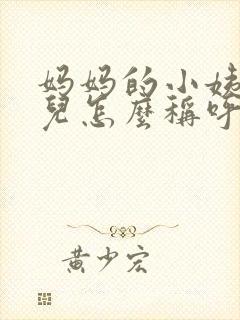 妈妈的小姨
兒怎麼稱呼
黄少宏